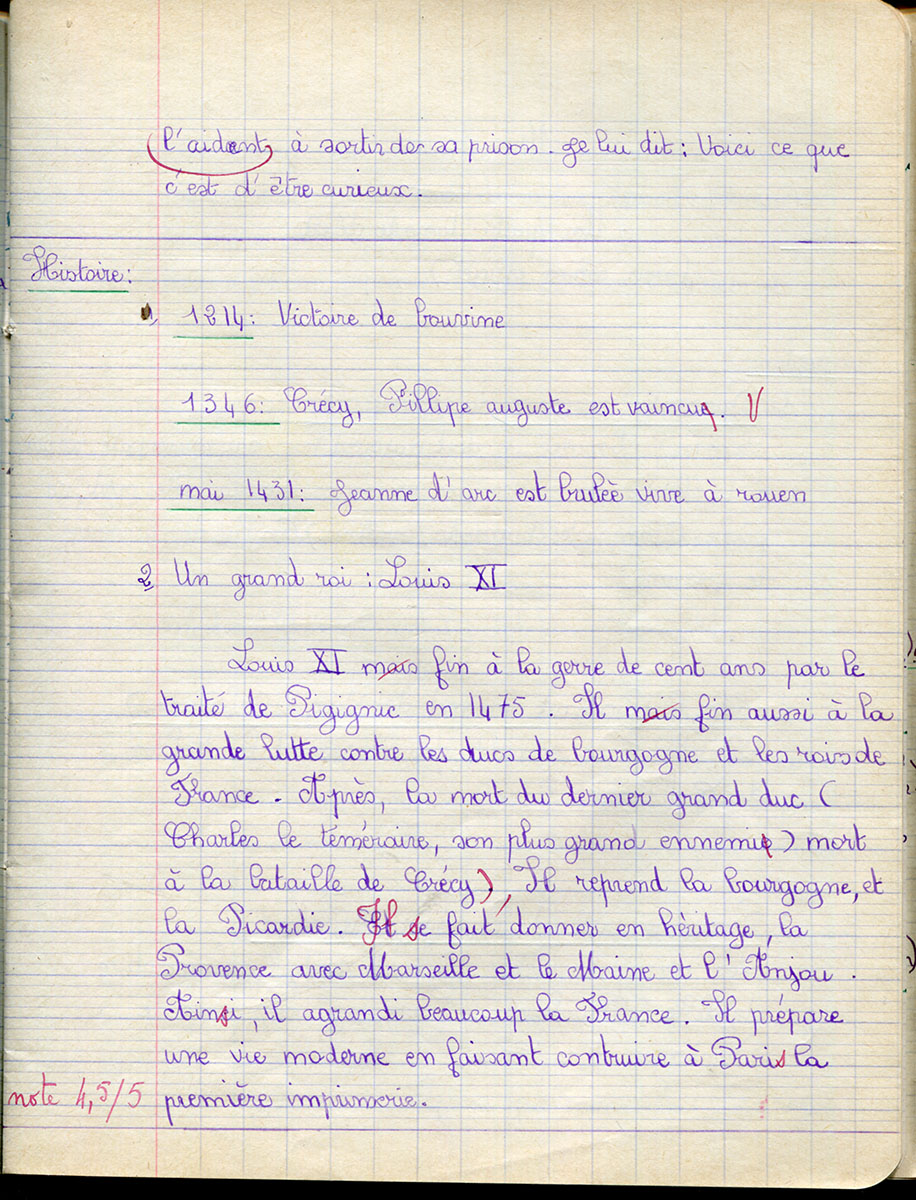 l'aident à sortir der sa prison. Je lui dit : Voici ce que
c'est d'être curieux.
Histoire :
1, 1214 : Victoire de bouvine
1346 : Crécy, Pillipe auguste est vaincu. V
mai 1431 : Jeanne d'arc est bruleè vive à rouen
2, Un grand roi : Louis XI
Louis XI mais fin à la gerre de cent ans par le
traité de Pigignuc en 1475. Il mais fin aussi à la
grande lutte contre les ducs de bourgogne et les rois de
France. Après, la mort du dernier grand duc (
Charles le téméraire, son plus grand ennemi ) mort
à la bataille de Crécy), Il reprend la bourgogne, et
la Picardie. Il se fait donner en hèritage, la
Provence avec Marseille et le Maine et l'Anjou.
Ainsi, il agrandi beaucoup la France. Il prépare
une vie moderne en faisant contruire à Paris la
note 4,5/5 première imprimerie.